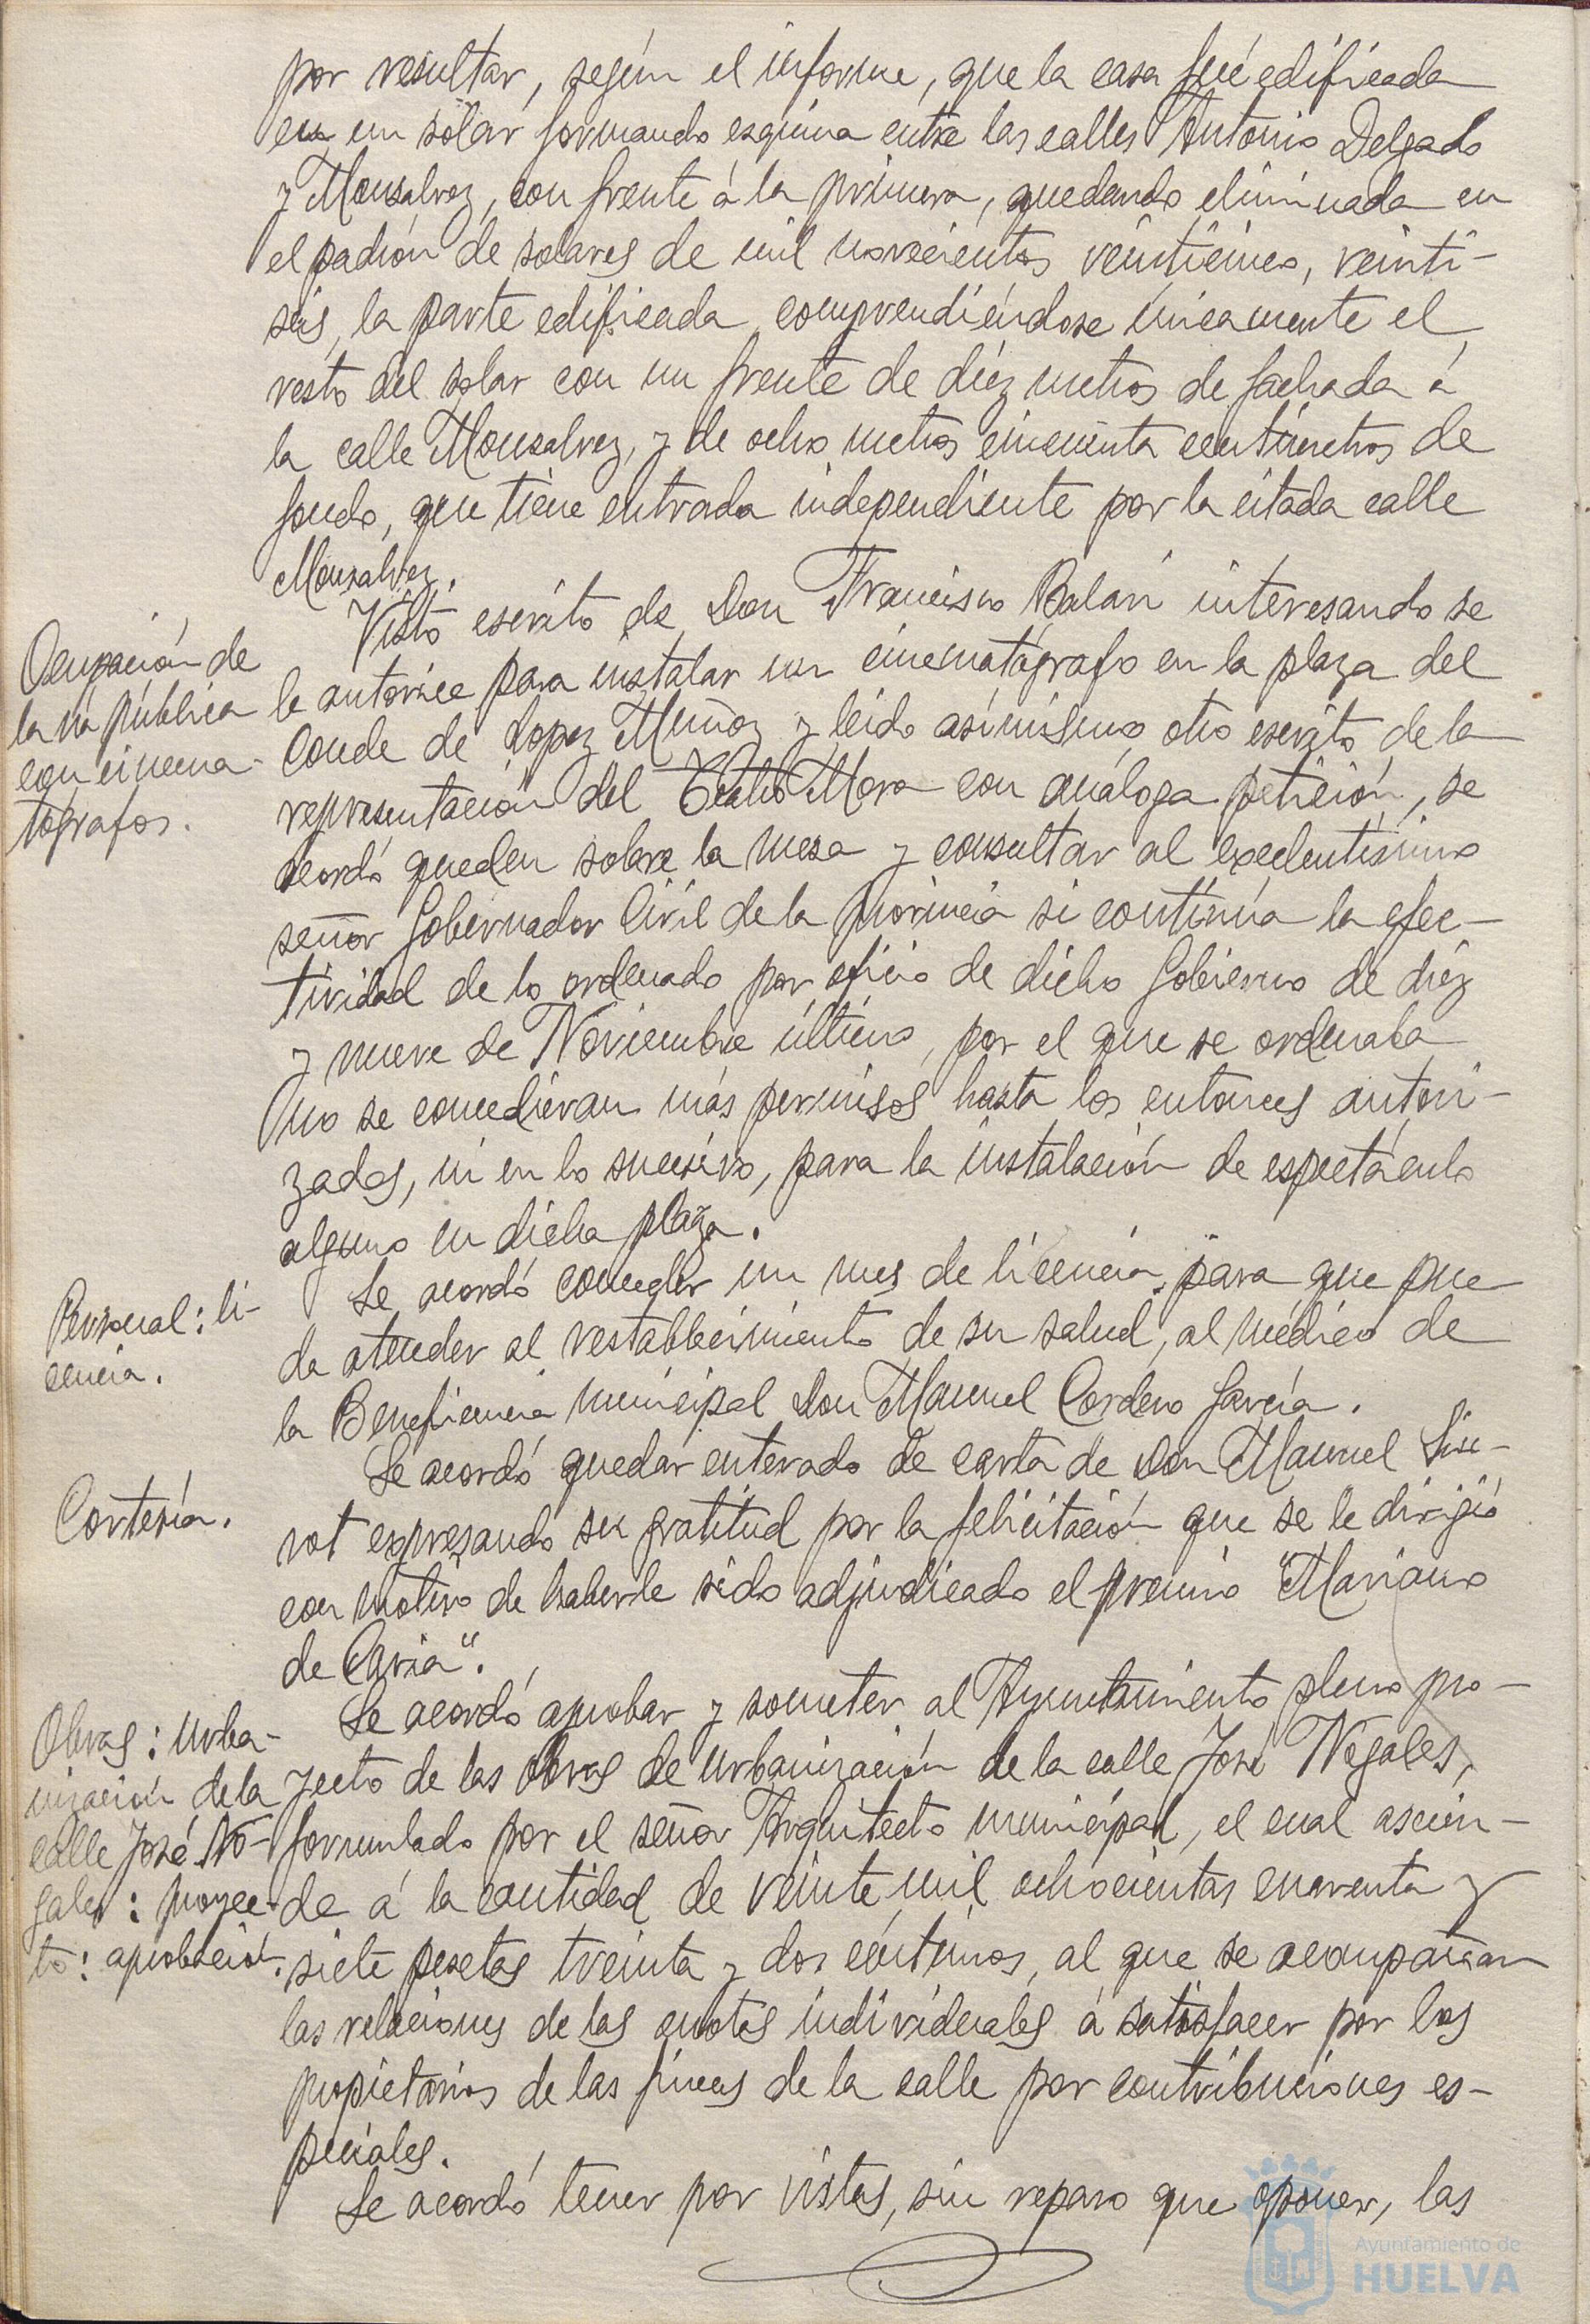 por resultar, según el informe, que la casa fué edificada
en un solar formando esquina entre las calles Antonio Delgado
y Monsalvez, con frente á la primera, quedando eliminada en
el padrón de solares de mil novecientos veinticinco, veinti-
seis, la parte edificada, comprendiéndose únicamente el
resto del solar con un frente de diéz metros de fachada á
la calle Monsalvez, y de ocho metros cincuenta centímetros de
fondo, que tiene entrada independiente por la citada calle
Monsalvez.
Ocupación de
la vía pública
con cinema-
tógrafos.
Visto escrito de Don Francisco Balan interesando se
le autorice para instalar un cinematógrafo en la plaza del
Conde de Lopez Muñoz y leído asímismo otro escrito de la
representación del Teatro Mora con análoga petición, se
acordó queden sobre la mesa y consultar al excelentísimo
señor Gobernador Civil de la provincia si continúa la efec-
tividad de lo ordenado por oficio de dicho Gobierno de diéz
y nueve de Noviembre último, por el que se ordenaba
no se concedieran más permisos hasta los entonces autori-
zados, ni en lo sucesivo, para la instalación de espectáculo
alguno en dicha plaza.
Personal: li-
cencia.
Se acordó conceder un mes de licencia, para que pue-
da atender al restablecimiento de su salud, al médico de
la Beneficencia municipal Don Manuel Cordero García.
Cortesía.
Se acordó quedar enterado de carta de Don Manuel Siu-
rot expresando su gratitud por la felicitación que se le dirigió
con motivo de haberle sido adjudicado el premio "Mariano
de Cavia".
Obras: urba-
nización de la
calle José No-
gales: proyec-
to: aprobación.
Se acordó aprobar y someter al Ayuntamiento pleno pro-
yecto de las obras de urbanización de la calle José Nogales,
formulado por el señor Arquitecto municipal, el cual ascien-
de á la cantidad de veinte mil ochocientas cuarenta y
siete pesetas treinta y dos céntimos, al que se acompañan
las relaciones de las cuotas individuales á satisfacer por los
propietarios de las fincas de la calle por contribuciones es-
peciales.
Se acordó tener por vistas, sin reparo que oponer, las
Ayuntamiento de
HUELVA